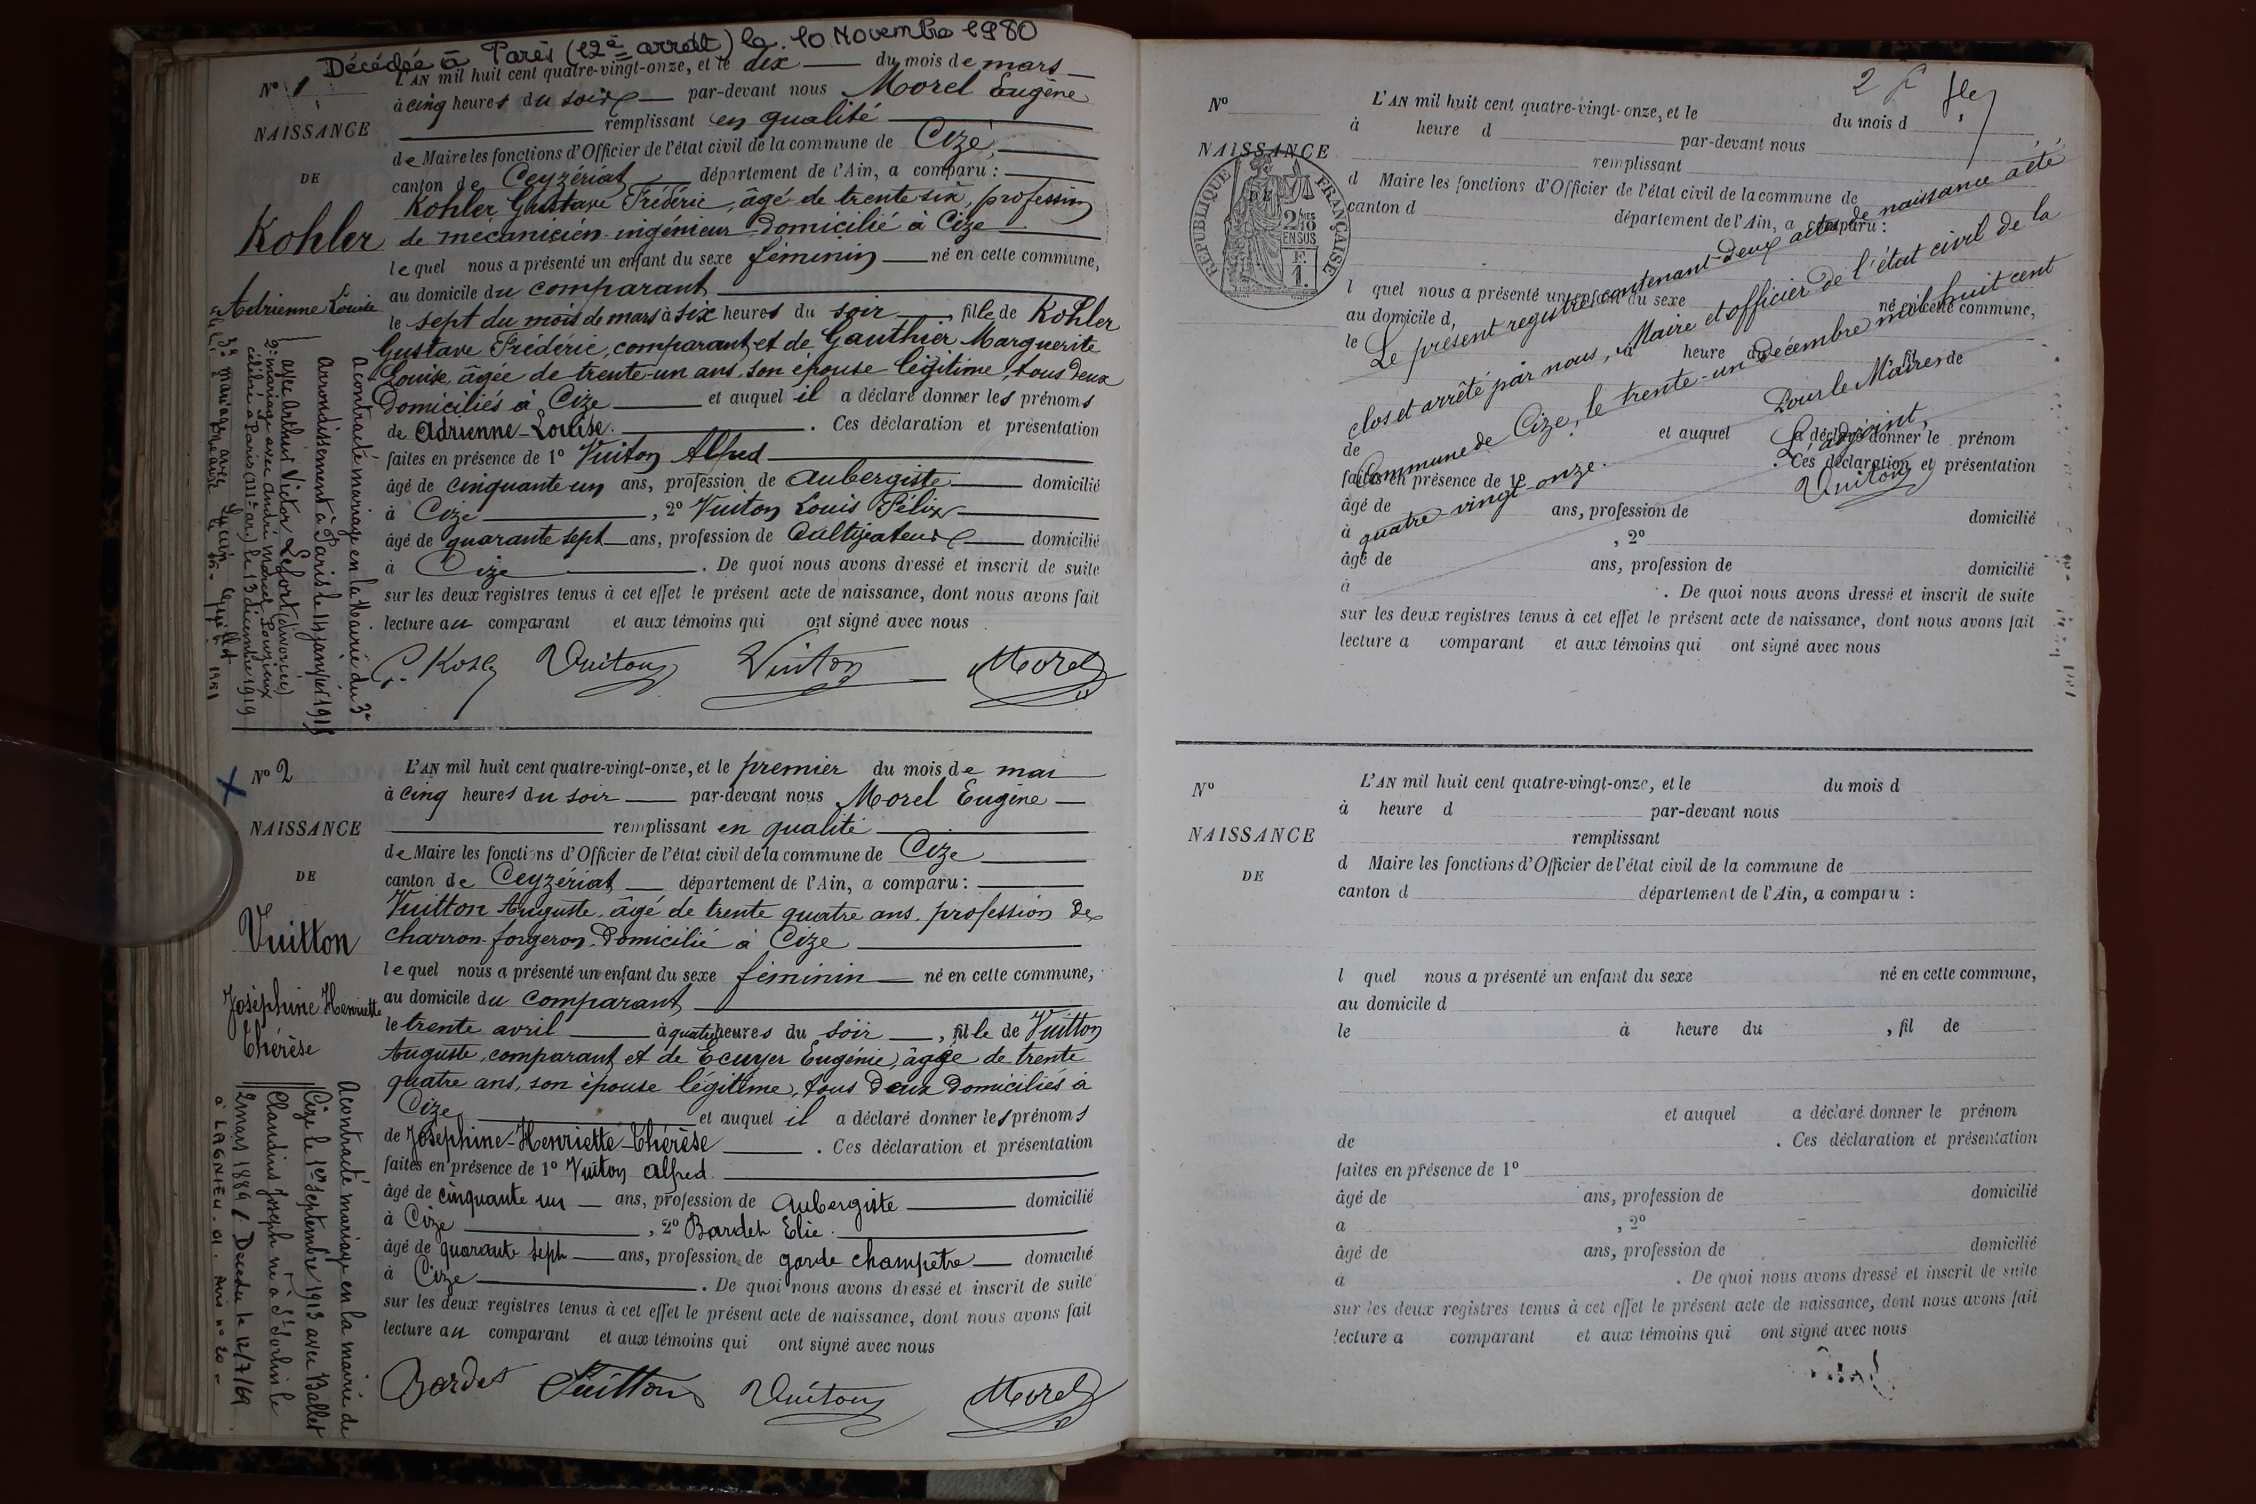 Décédée à Paris (12e arrdt) le 10 Novembre 1980
No 1
NAISSANCE
DE
Kohler
Adrienne Louise
L'AN mil huit cent quatre-vingt-onze, et le dix du mois de mars
à cinq heures du soir par-devant nous Morel Eugène
remplissant en qualité
de Maire les fonctions d'Officier de l'état civil de la commune de Cize,
canton de Ceyzériat département de l'Ain, a comparu :
Kohler Gustave Frédéric, âgé de trente six, profession
de mécanicien-ingénieur domicilié à Cize
lequel nous a présenté un enfant du sexe féminin né en cette commune,
au domicile du comparant
le sept du mois de mars à six heures du soir fille de Kohler
Gustave Frédéric, comparant, et de Gauthier Marguerite
Louise, âgée de trente-un ans, son épouse légitime, tous deux
Domiciliés à Cize et auquel il a déclaré donner les prénoms
de Adrienne-Louise. Ces déclaration et présentation
faites en présence de 1o Vuiton Alfred
âgé de cinquante un ans, profession de aubergiste domicilié
à Cize, 2o Vuiton Louis Félix
âgé de quarante sept ans, profession de Cultivateur domicilié
à Cize. De quoi nous avons dressé et inscrit de suite
sur les deux registres tenus à cet effet le présent acte de naissance, dont nous avons fait
lecture au comparant et aux témoins qui ont signé avec nous.
Vuiton Vuiton Morel
A contracté mariage en la Mairie du 3e
arrondissement à Paris le 14 janvier 1911
avec Arthur Victor Lefort (divorcée)
2e mariage avec André Marcel Pouzieux
célébré à Paris (11e arr.) le 13 décembre 1919
3e mariage avec Lucien
1951
No 2
NAISSANCE
DE
Vuitton
Joséphine Henriette
Thérèse
L'AN mil huit cent quatre-vingt-onze, et le premier du mois de mai
à cinq heures du soir par-devant nous Morel Eugène
remplissant en qualité
de Maire les fonctions d'Officier de l'état civil de la commune de Cize
canton de Ceyzériat département de l'Ain, a comparu :
Vuitton Auguste, âgé de trente quatre ans, profession de
charron-forgeron, Domicilié à Cize
lequel nous a présenté un enfant du sexe féminin né en cette commune,
au domicile du comparant
le trente avril à quatre heures du soir, fille de Vuitton
Auguste, comparant, et de Ecuyer Eugénie, âgée de trente
quatre ans, son épouse légitime, tous deux domiciliés à
Cize et auquel il a déclaré donner les prénoms
de Joséphine-Henriette-Thérèse. Ces déclaration et présentation
faites en présence de 1o Vuiton Alfred.
âgé de cinquante un ans, profession de Aubergiste domicilié
à Cize, 2o Bardet Elie.
âgé de quarante sept ans, profession de garde champêtre domicilié
à Cize. De quoi nous avons dressé et inscrit de suite
sur les deux registres tenus à cet effet le présent acte de naissance, dont nous avons fait
lecture au comparant et aux témoins qui ont signé avec nous
Bardet Vuitton Vuiton Morel
A contracté mariage en la mairie de
Cize le 1er septembre 1913 avec Ballet
Claudius Joseph né à St Sorlin le
2 mars 1889. Décédée le 12/7/69
à LAGNIEU. 01. Avis no 20
No
NAISSANCE
DE
RÉPUBLIQUE FRANÇAISE
2/10 EN SUS
F.
1.
L'AN mil huit cent quatre-vingt-onze, et le du mois d
à heure d par-devant nous
remplissant
d Maire les fonctions d'Officier de l'état civil de la commune de
canton d département de l'Ain, a comparu :
l quel nous a présenté un enfant du sexe né en cette commune,
au domicile d
le à heure du fil de
et auquel a déclaré donner le prénom
de . Ces déclaration et présentation
faites en présence de 1o
âgé de ans, profession de domicilié
à , 2o
âgé de ans, profession de domicilié
à . De quoi nous avons dressé et inscrit de suite
sur les deux registres tenus à cet effet le présent acte de naissance, dont nous avons fait
lecture a comparant et aux témoins qui ont signé avec nous
Le présent registre contenant deux actes de naissance a été
clos et arrêté par nous, Maire et officier de l'état civil de la
Commune de Cize, le trente-un décembre mil huit cent
quatre vingt onze.
Pour le Maire
L'adjoint,
Vuiton
No
NAISSANCE
DE
L'AN mil huit cent quatre-vingt-onze, et le du mois d
à heure d par-devant nous
remplissant
d Maire les fonctions d'Officier de l'état civil de la commune de
canton d département de l'Ain, a comparu :
l quel nous a présenté un enfant du sexe né en cette commune,
au domicile d
le à heure du , fil de
et auquel a déclaré donner le prénom
de . Ces déclaration et présentation
faites en présence de 1o
âgé de ans, profession de domicilié
a , 2o
âgé de ans, profession de domicilié
à . De quoi nous avons dressé et inscrit de suite
sur les deux registres tenus à cet effet le présent acte de naissance, dont nous avons fait
lecture a comparant et aux témoins qui ont signé avec nous